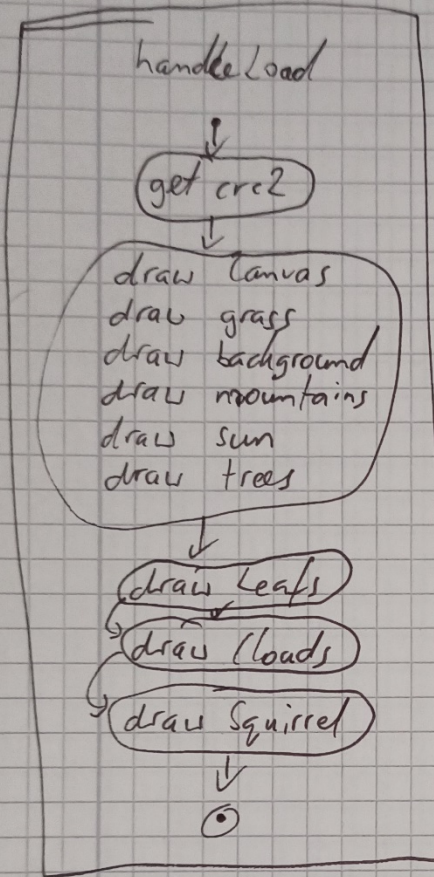 handleLoad
get crc2
draw Canvas
draw grass
draw background
draw mountains
draw sun
draw trees
draw Leafs
draw Clouds
draw Squirrel